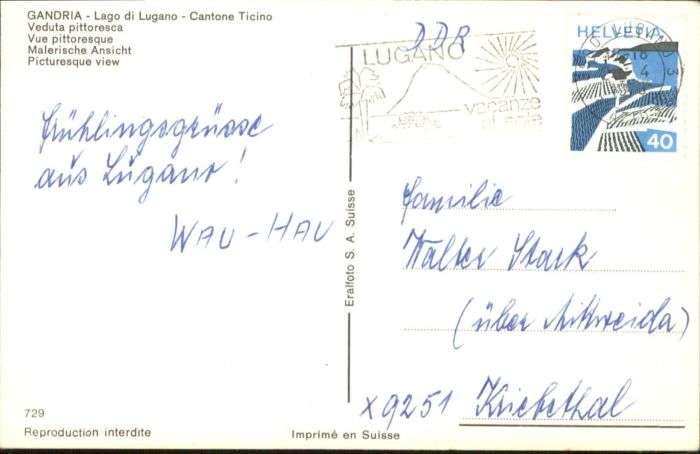 GANDRIA - Lago di Lugano - Cantone Ticino
Veduta pittoresca
Vue pittoresque
Malerische Ansicht
Picturesque view
DDR
LUGANO
vacanze
al sole
HELVETIA
40
Frühlingsgrüsse
aus Lugano!
WAU-HAU
Eralfoto S. A. Suisse
Familie
Walter Stark
(über Mittweida)
x9251 Kriebethal
729
Reproduction interdite
Imprimé en Suisse